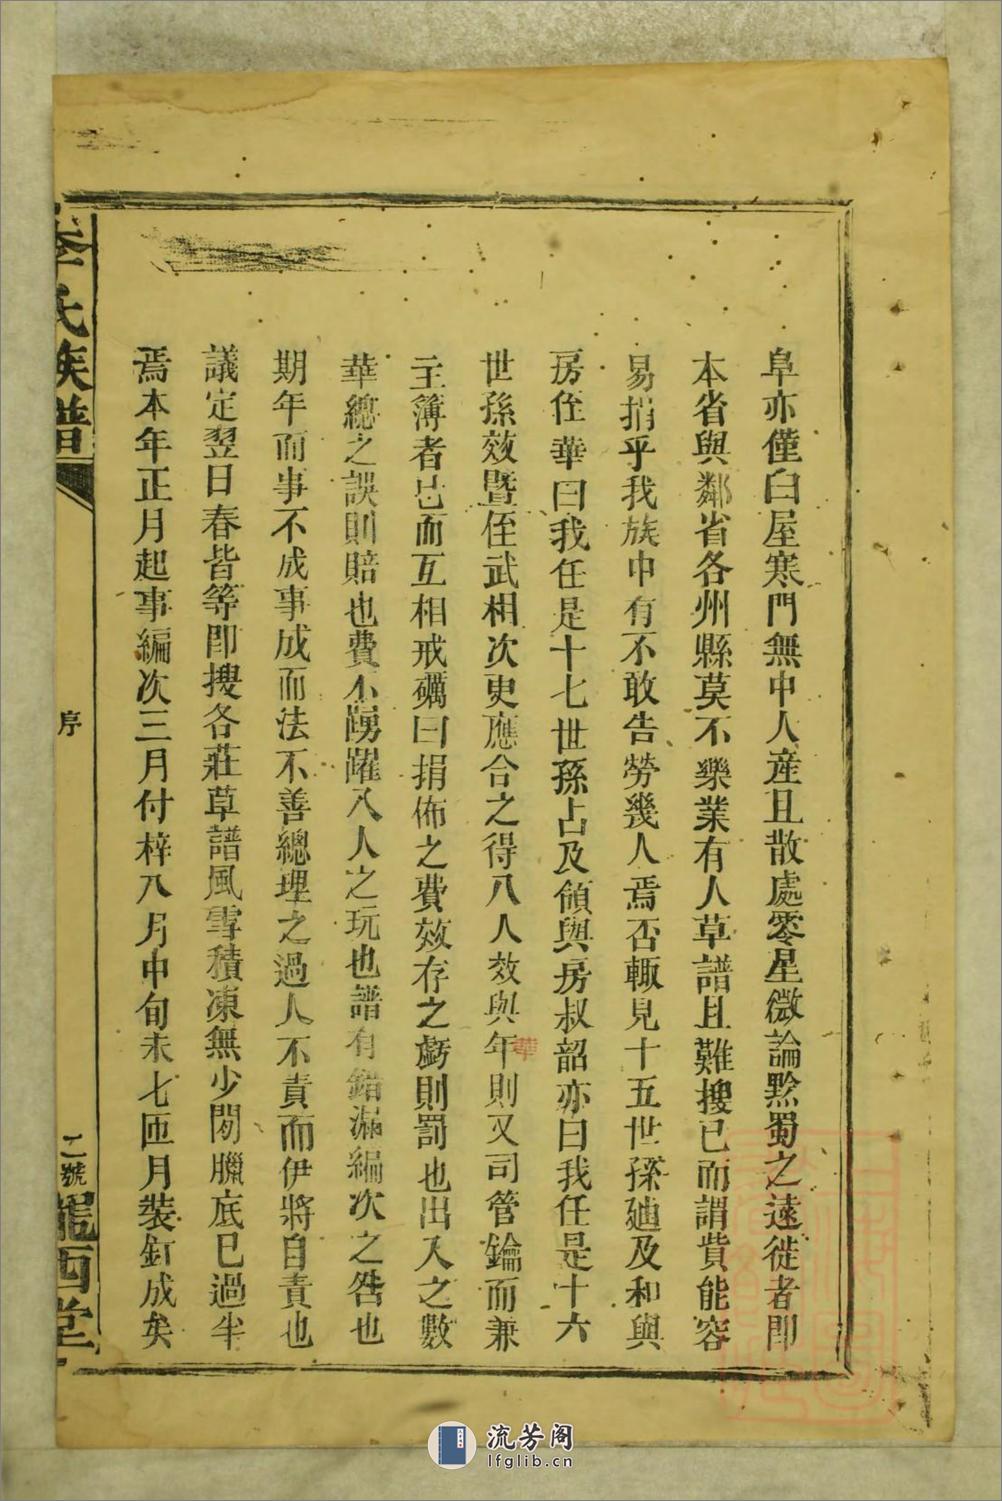 阜亦僅臼屋寒門無中人産且散處零星微論黔蜀之遠徙者即
本省與鄰省各州縣莫不樂業有人草譜且難搜已而謂貲能容
易捐乎我族中有不敢告勞幾人焉否輙見十五世孫廸及和與
房侄華曰我任是十七世孫占及領與房叔韶亦曰我任是十六
世孫效暨侄武相次吏應合之得八人效與年則又司管鑰而兼
華
主簿者已而互相戒礪曰捐佈之費效存之虧則罰也出入之數
華總之誤則賠也費不踴躍八人之玩也譜有錯漏編次之咎也
期年而事不成事成而法不善總理之過人不責而伊將自責也
議定翌日春皆等即搜各莊草譜風雪積凍無少閒臘底已過半
焉本年正月起事編次三月付梓八月中旬未七匝月裝釘成矣
李氏族譜
序
二號
隴西堂
流芳阁
lfglib.cn